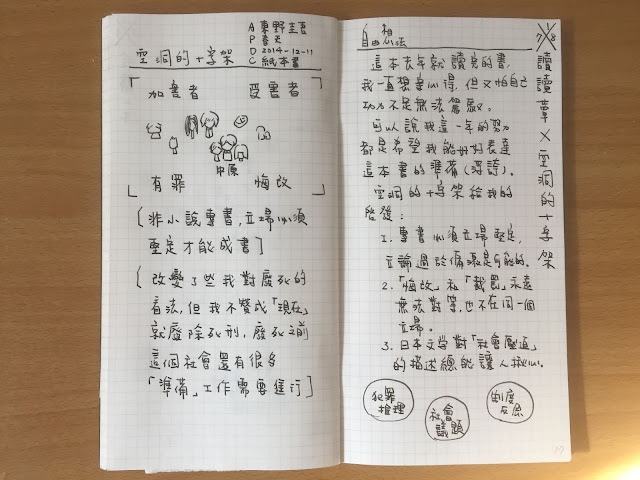 空洞的十字架
A 東野圭吾
P 春天
D 2014-12-11
C 紙本書
加害者 受害者
中原
有罪 悔改
[非小說專書,立場必須
堅定才能成書]
[改變了些我對廢死的
看法,但我不贊成「現在」
就廢除死刑,廢死之前
這個社會還有很多
「準備」工作需要進行]
自由想法
這本去年就讀完的書,
我一直想要心得,但又怕自己
功力不足無法駕馭。
可以說我這一年的努力
都是希望我能好好表達
這本書的準備(浮誇)。
空洞的十字架給我的
啓後:
1. 專書必須立場堅定,
立論過於偏激是可能的。
2.「悔改」和「裁罰」永遠
無法對等,也不在同一個
立場。
3. 日本文學對「社會壓迫」
的描述總能讓人揪心。
犯罪
推理
社會
議題
制度
反思
7/8
讀讀葦×空洞的十字架